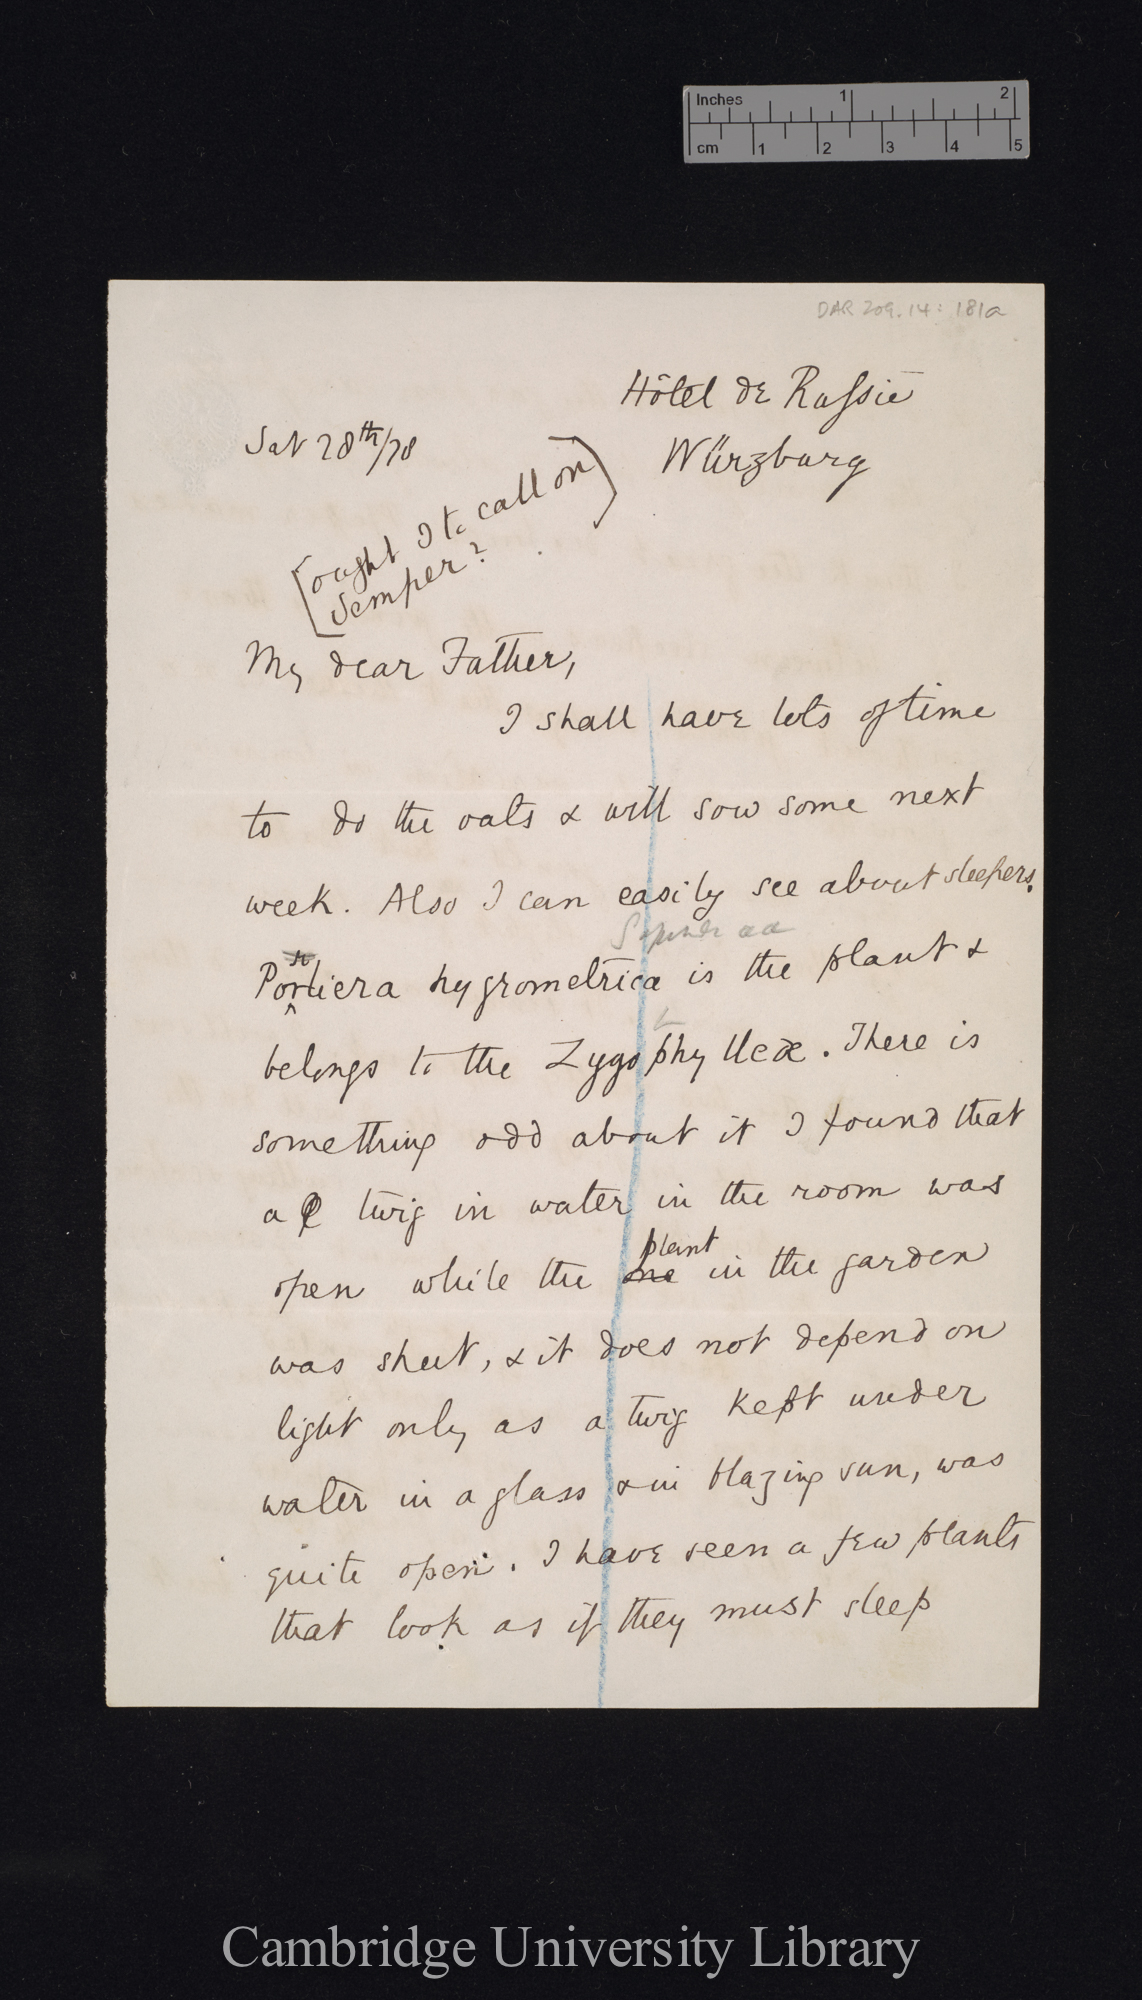 Inches 1 2
cm 1 2 3 4 5
DAR 209.14: 181a
Hôtel de Russie
Sat 28th/78
Würzburg
[ought I to call on
Semper?]
My dear Father,
I shall have lots of time
to do the oats & will sow some next
week. Also I can easily see about sleepers.
Porliera hygrometrica is the plant &
belongs to the Zygophylleæ. There is
something odd about it I found that
a twig in water in the room was
plant
open while the one in the garden
was shut, & it does not depend on
light only as a twig kept under
water in a glass & in blazing sun, was
quite open. I have seen a few plants
that look as if they must sleep
Cambridge University Library